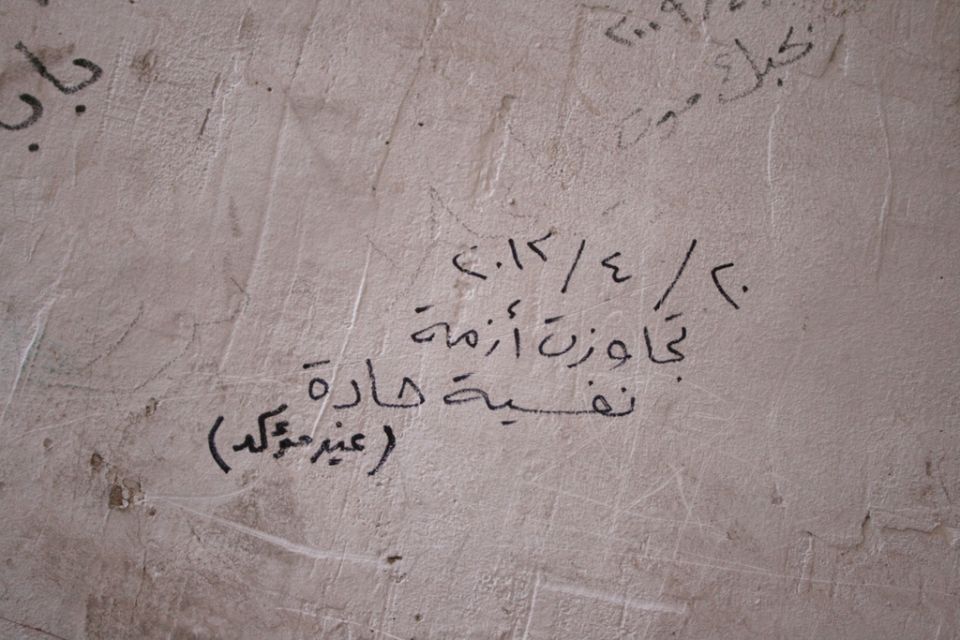 بحبك موت
٢٠ / ٤ / ٢٠١٢
تجاوزت أزمة
نفسية حادة
(غير مؤكد)